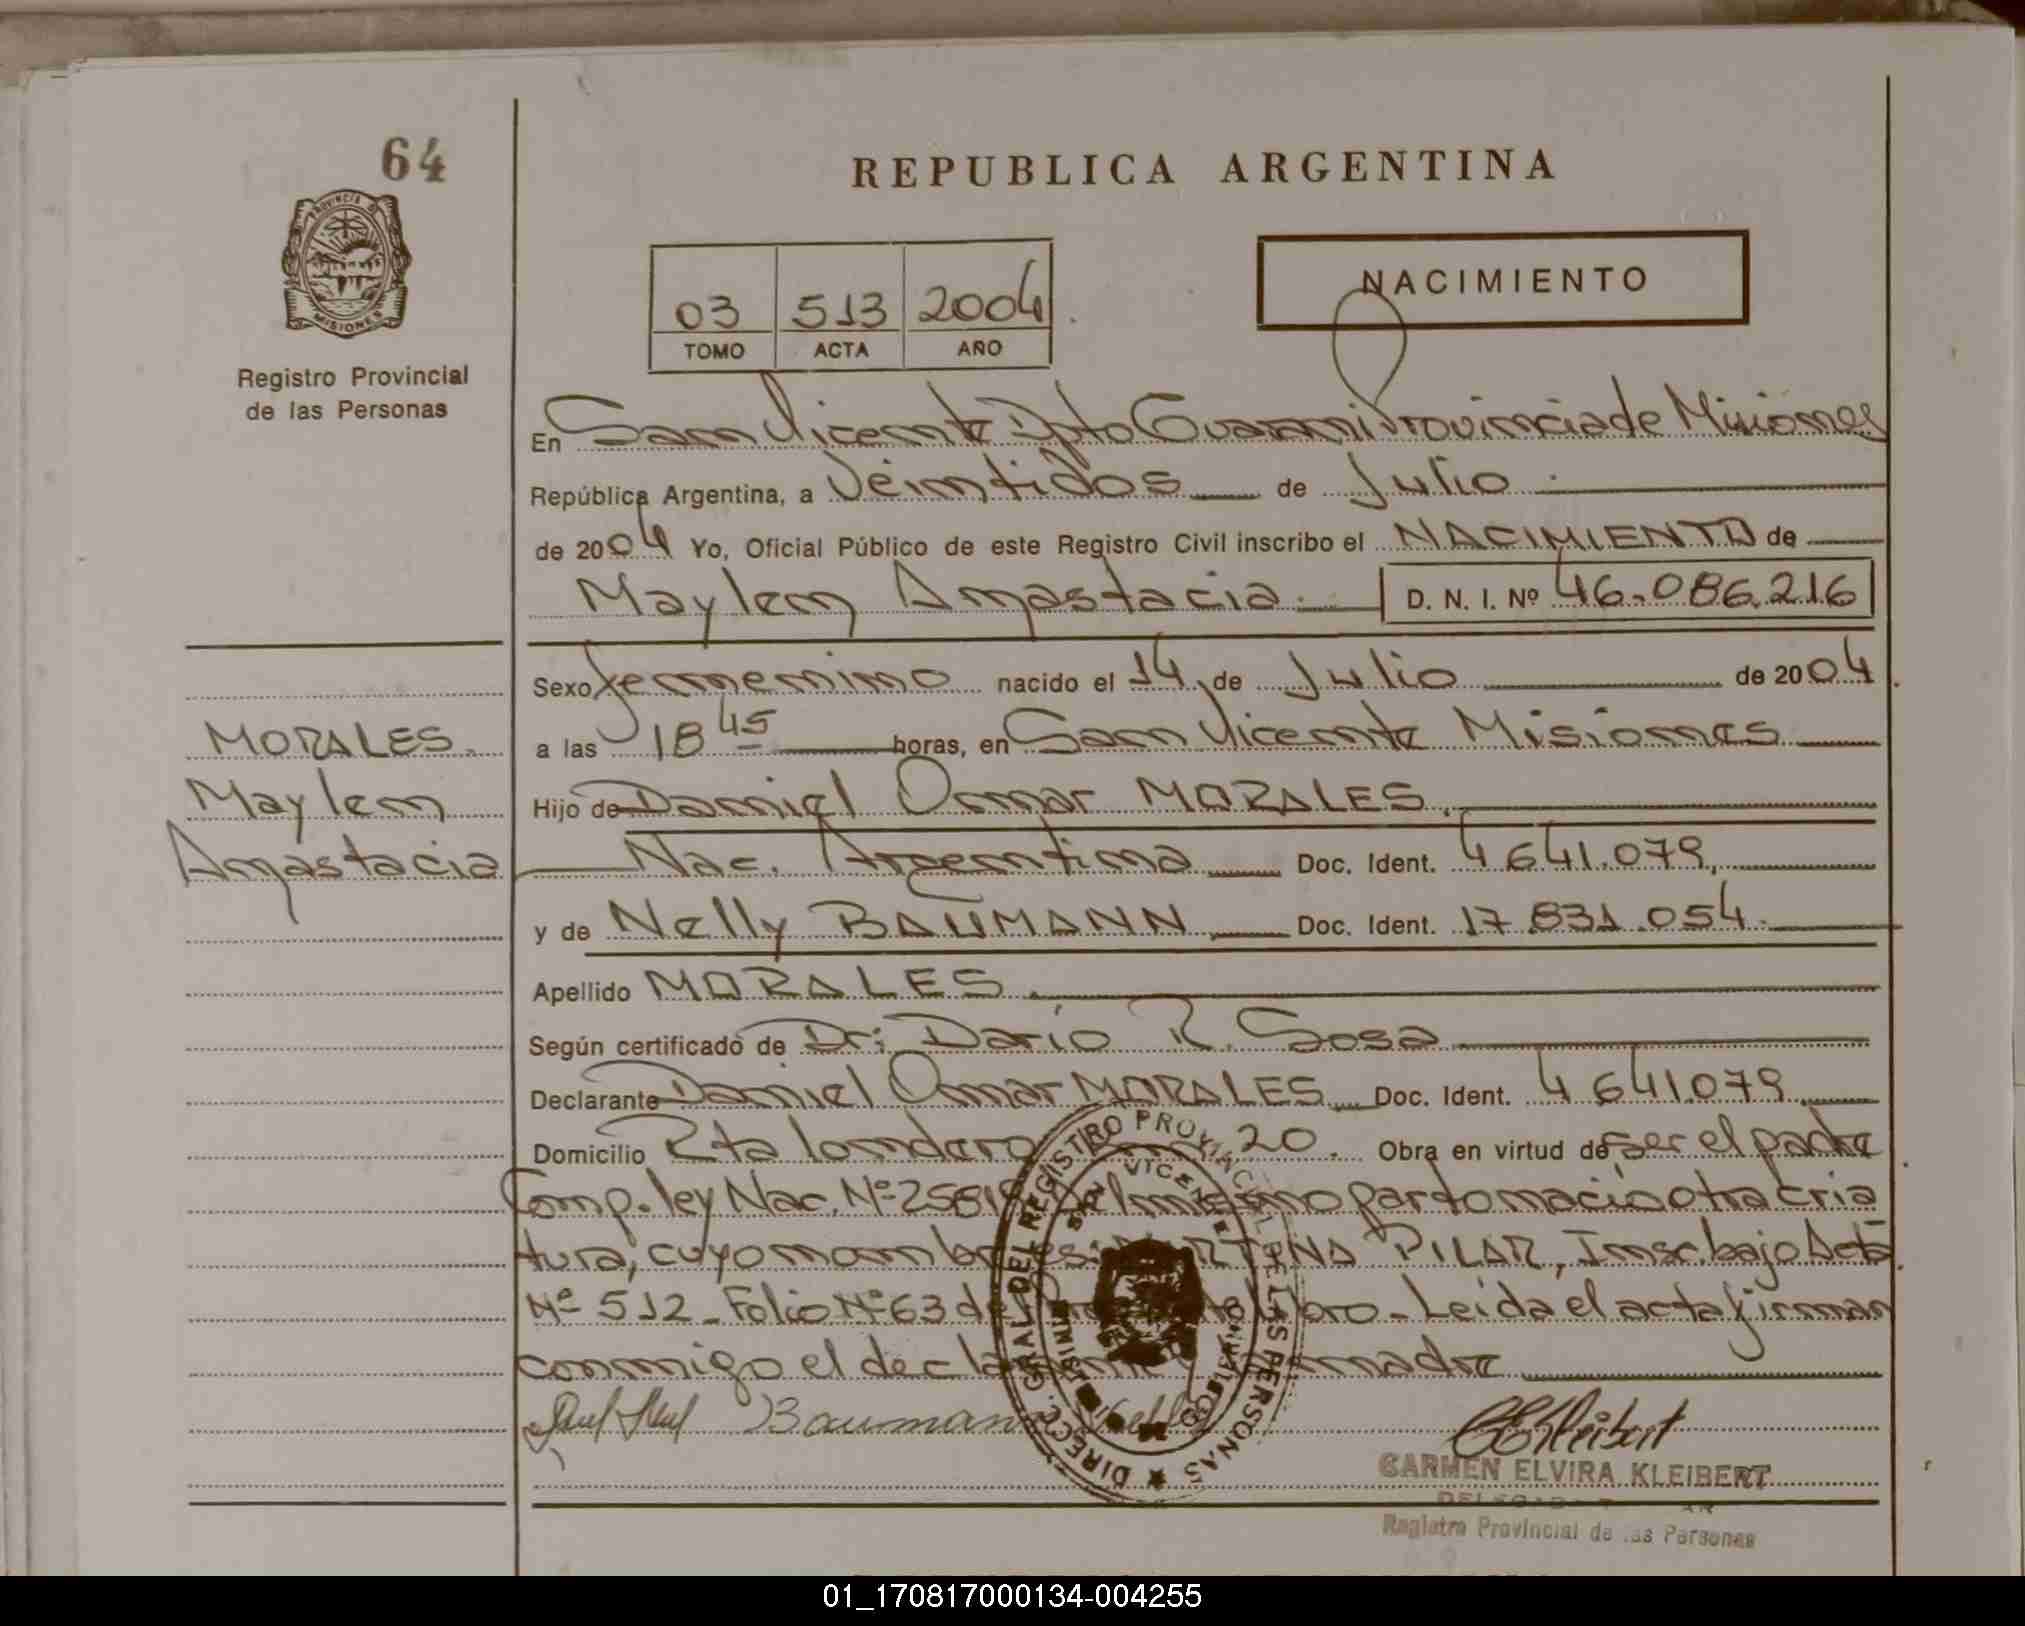 64
REPUBLICA ARGENTINA
PROVINCIA DE
MISIONES
Registro Provincial
de las Personas
03 513 2004
TOMO ACTA AÑO
NACIMIENTO
En San Vicente Dpto Guarani Provincia de Misiones
República Argentina, a Veintidos de Julio
de 2004 Yo, Oficial Público de este Registro Civil inscribo el NACIMIENTO de
Maylen Anastacia D. N. I. Nº 46.086.216
Sexo femenino nacido el 14 de Julio de 2004
a las 18 45 horas, en San Vicente Misiones
Hijo de Daniel Omar MORALES
Nac. Argentina Doc. Ident. 4 641.079
y de Nelly BAUMANN Doc. Ident. 17.831.054
Apellido MORALES
MORALES
Maylen
Anastacia
Según certificado de Dr: Dario R. Sosa
Declarante Daniel Omar MORALES Doc. Ident. 4 641.079
Domicilio Rta londero 20. Obra en virtud de ser el padre
Comp. ley Nac. Nº 25819 Del mismo parto nacio otra cria
tura, cuyo nombre es: MARTINA PILAR, Insc. bajo Acta
Nº 512 - Folio Nº 63 de Libro - Leida el acta firman
conmigo el declarante madre
Baumann Nelly
CARMEN ELVIRA KLEIBERT
Registro Provincial de las Personas
DIRECC. GRAL. DEL REGISTRO PROVINCIAL DE LAS PERSONAS
SAN VICENTE
01_170817000134-004255